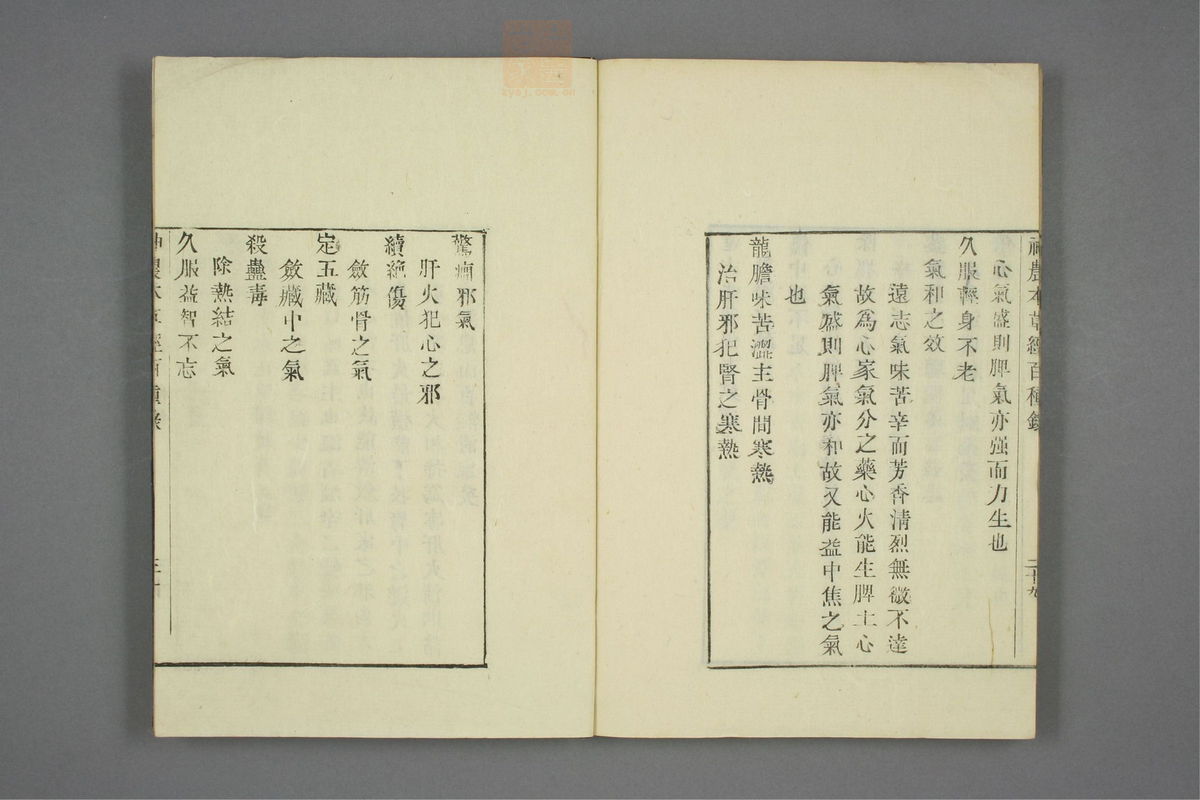 神農本草經百種錄
二十九
心氣盛則脾氣亦强而力生也
久服輕身不老
氣和之效
遠志氣味苦辛而芳香清烈無微不達
故爲心家氣分之藥心火能生脾土心
氣盛則脾氣亦和故又能益中焦之氣
也
龍膽味苦澀主骨間寒熱
治肝邪犯腎之寒熱
驚癇邪氣
肝火犯心之邪
續絶傷
斂筋骨之氣
定五藏
斂藏中之氣
殺蠱毒
除熱結之氣
久服益智不忘
神農本草經百種錄
三十
zysj.com.cn